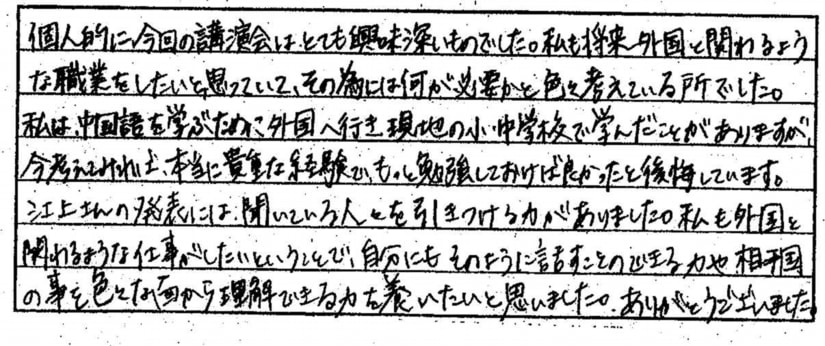 個人的に今回の講演会はとても興味深いものでした。私も将来外国と関わるよう
な職業をしたいと思っていて、その為には何が必要かと色々考えている所でした。
私は、中国語を学ぶために外国へ行き現地の小・中学校で学んだことがありますが、
今考えてみれば、本当に貴重な経験で、もっと勉強しておけば良かったと後悔しています。
江上さんの発表には、聞いている人々を引きつける力がありました。私も外国と
関わるような仕事がしたいということで、自分にもそのように話すことのできる力や相手国
の事を色々な面から理解できる力を養いたいと思いました。ありがとうございました。